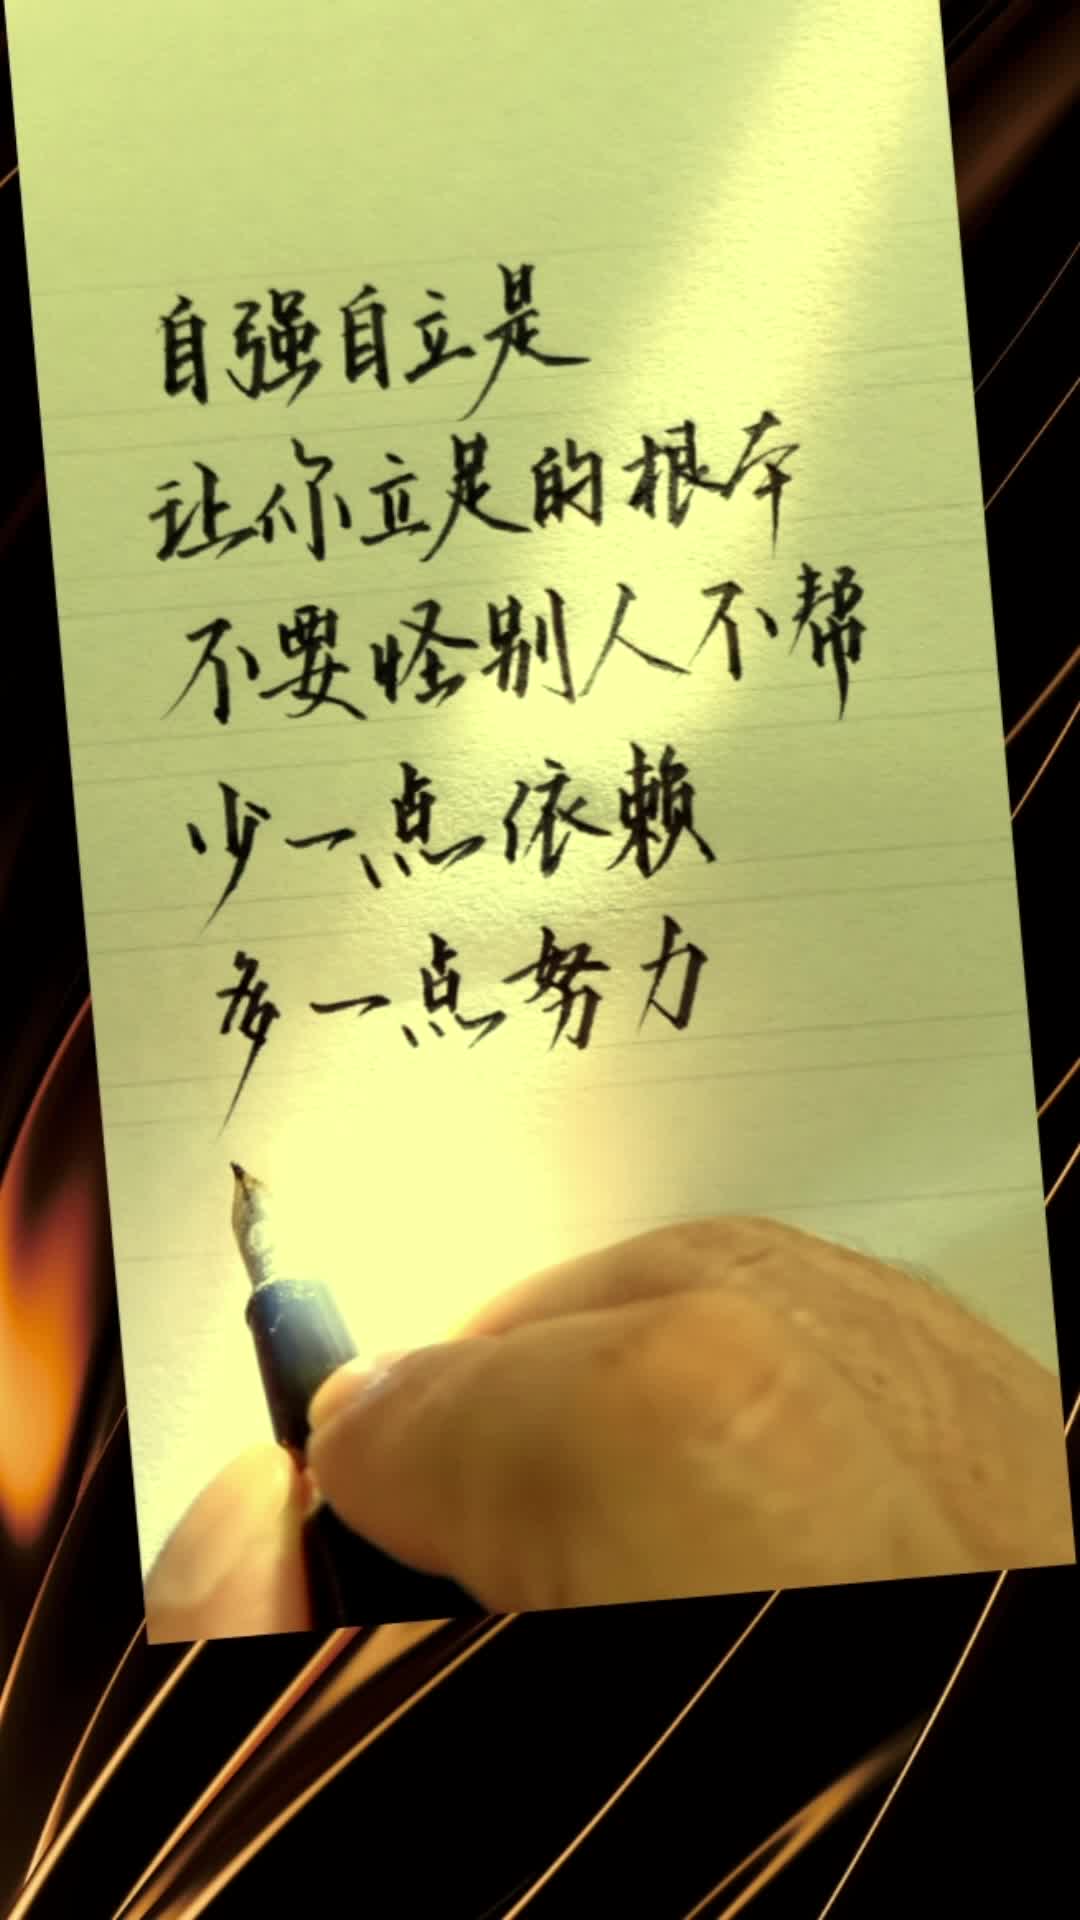 自强自立是
让你立足的根本
不要怪别人不帮
少一点依赖
多一点努力